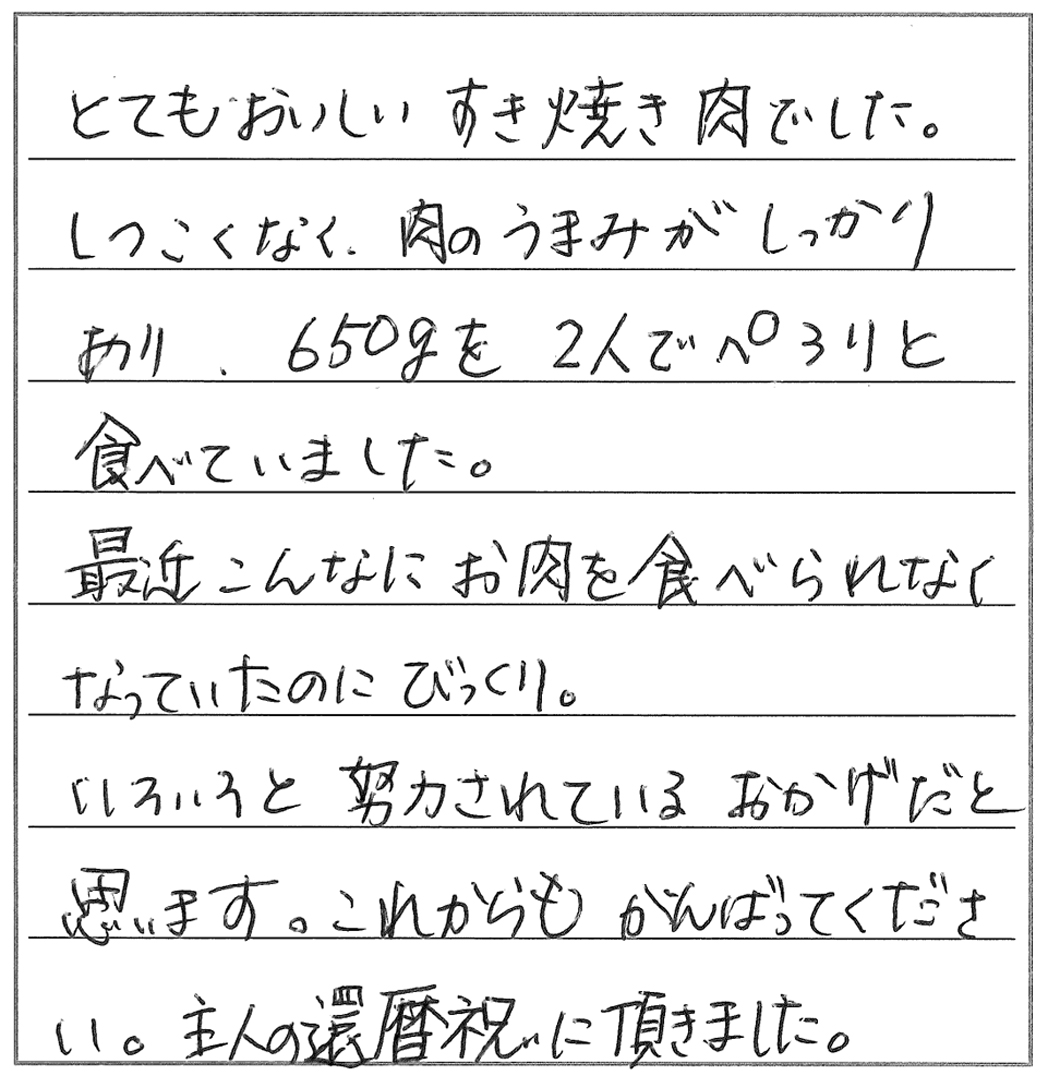 とてもおいしい すき焼き肉でした。
しつこくなく、肉のうまみがしっかり
あり、650gを 2人でペろりと
食べていました。
最近こんなに お肉を食べられなく
なっていたのに びっくり。
いろいろと 努力されている おかげだと
思います。これからも がんばってくださ
い。主人の還暦祝いに頂きました。